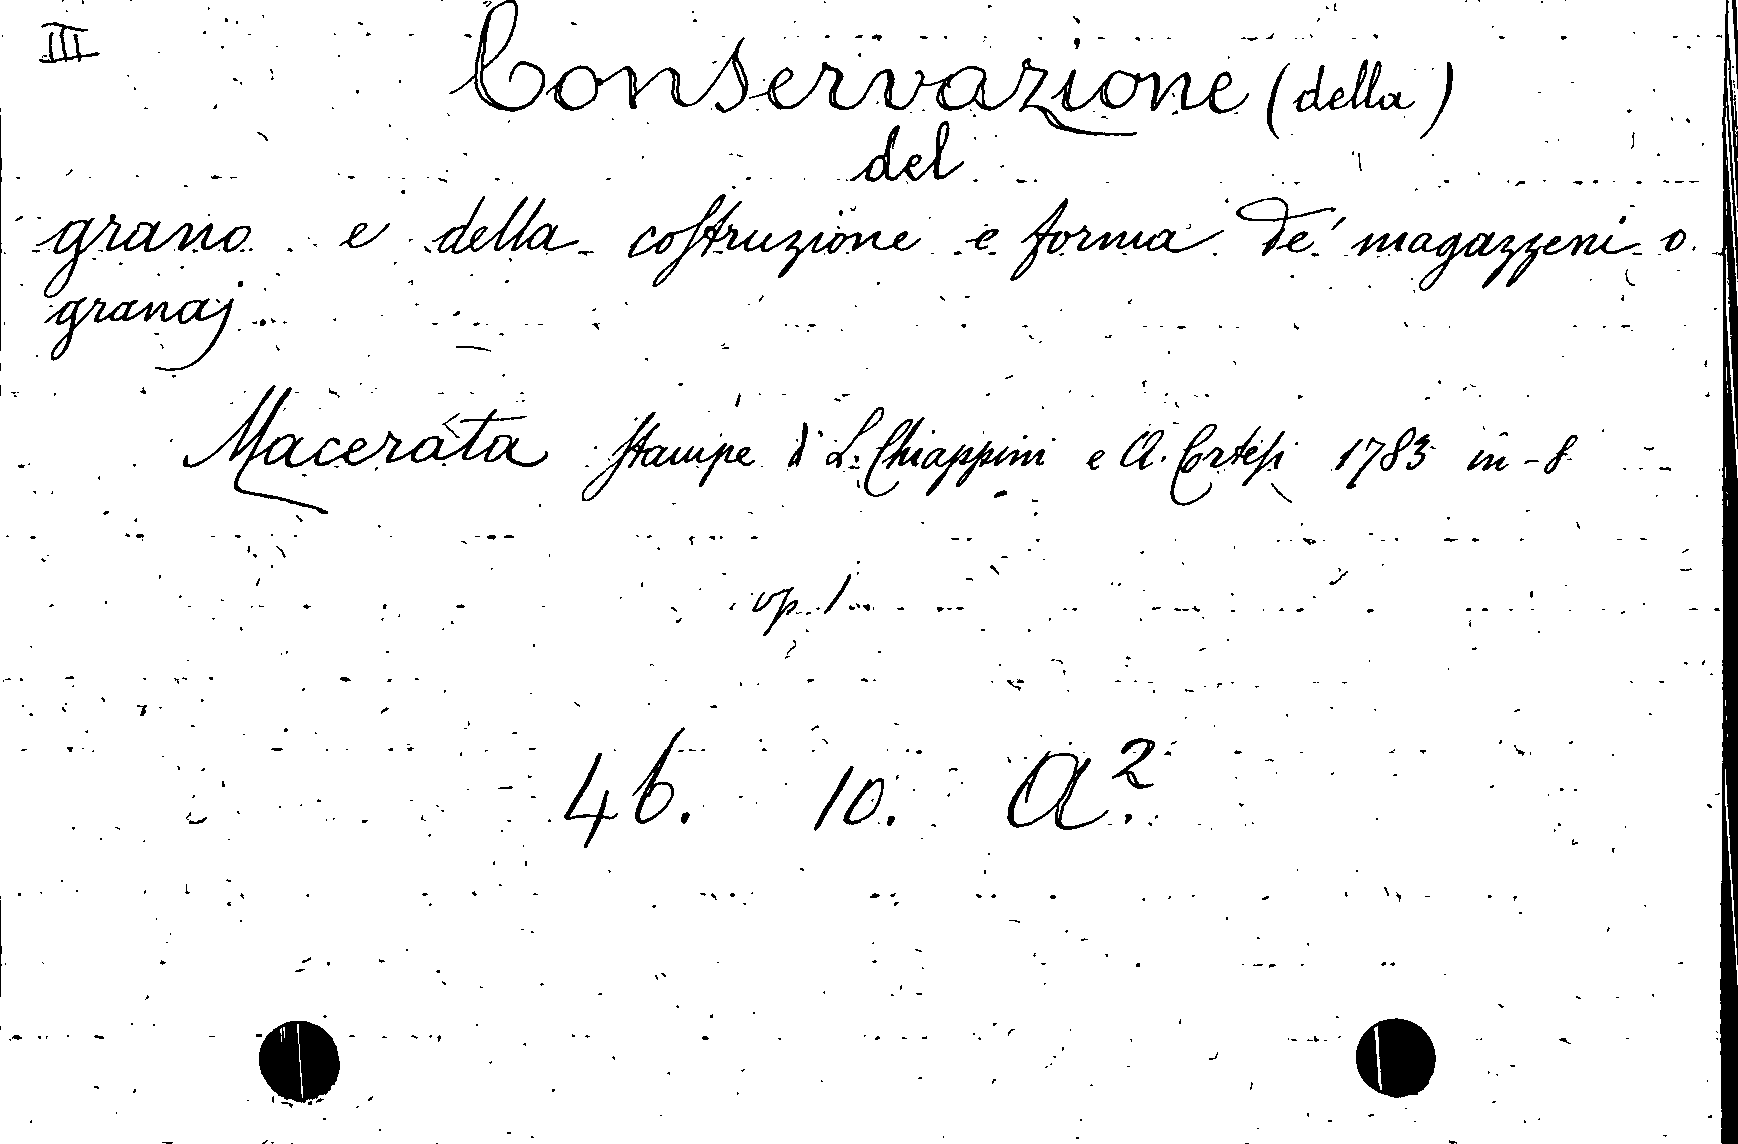 III
Conservazione (della)
del
grano e della costruzione e forma de' magazzeni o
granaj
Macerata Stampe di L. Chiappini e A. Cortesi 1783 in-8
vp. 1
46. 10. A².